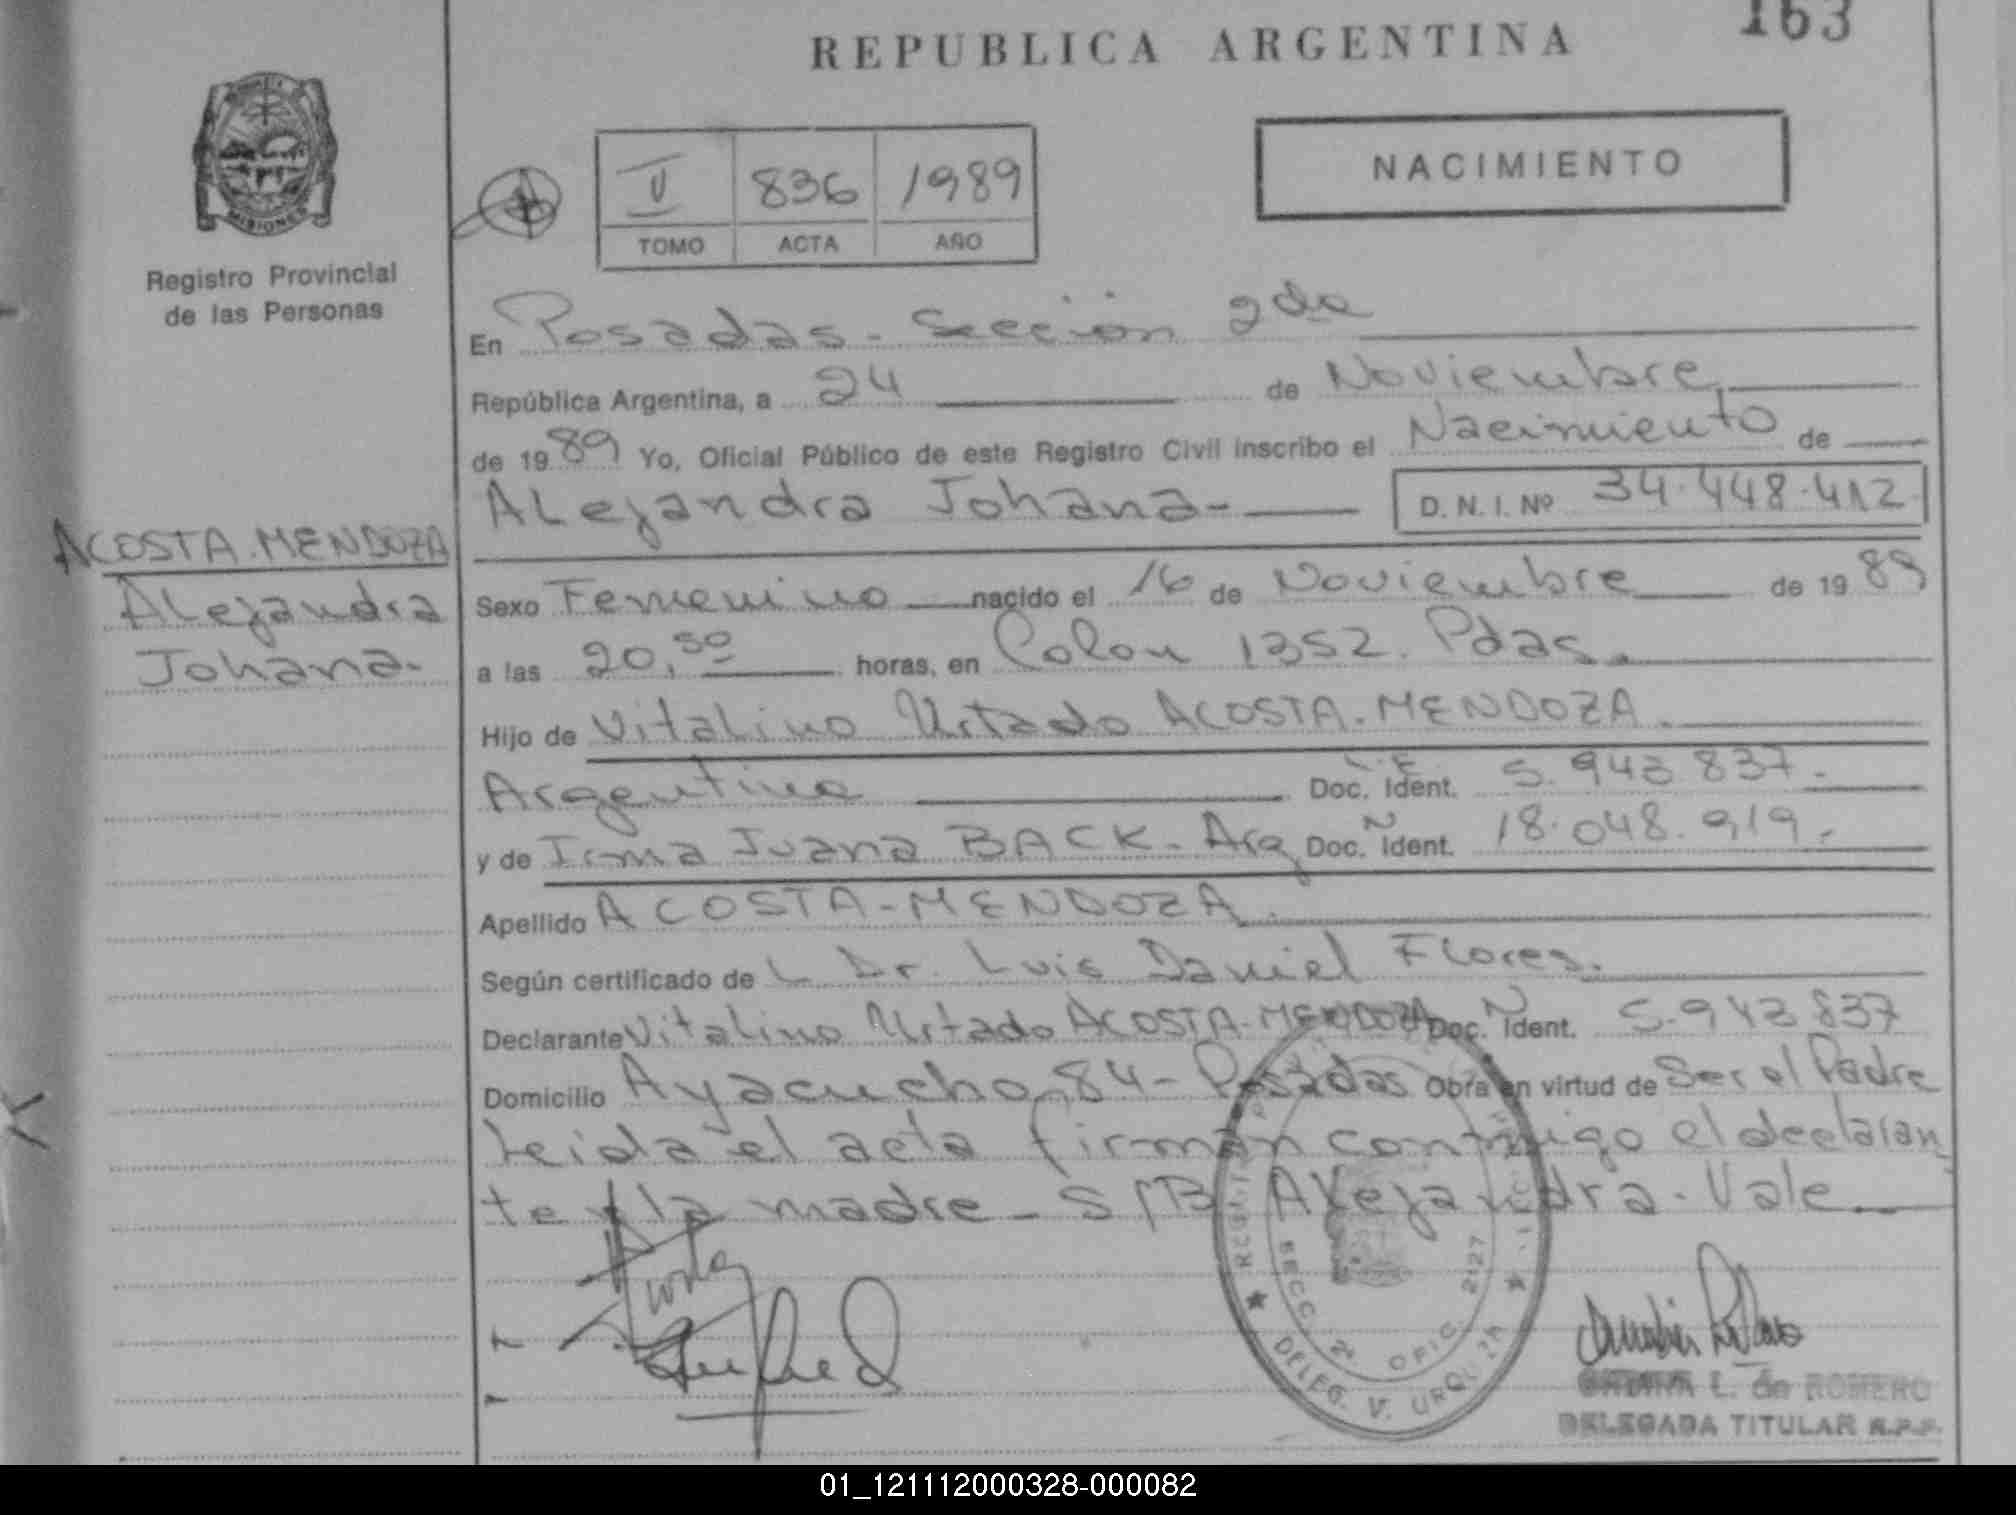 163
REPUBLICA ARGENTINA
NACIMIENTO
MISIONES
Registro Provincial
de las Personas
V 836 1989
TOMO ACTA AÑO
En Posadas - Sección 2da
República Argentina, a 24 de Noviembre
de 1989 Yo, Oficial Público de este Registro Civil inscribo el Nacimiento de
Alejandra Johana - D. N. I. Nº 34.448.412
ACOSTA.MENDOZA
Alejandra
Johana.
Sexo Femenino nacido el 16 de Noviembre de 1989
a las 20,50 horas, en Colon 1352. Pdas.
Hijo de Vitalino Urtado ACOSTA.MENDOZA.
Argentino L.E. Doc. Ident. 5.943.837.
y de Irma Juana BACK. Arg Doc. Ident. 18.048.919.
Apellido ACOSTA-MENDOZA.
Según certificado de L Dr. Luis Daniel Flores.
Declarante Vitalino Urtado ACOSTA-MENDOZA Doc. Ident. 5.943.837
Domicilio Ayacucho 84 - Posadas Obra en virtud de Ser el Padre
Leida el acta firman conmigo el declaran
te y la madre - S/B Alejandra. Vale
SECC. 2ª OFIC. 2127
DELEG. V. URQUIZA
L. de ROMERO
DELEGADA TITULAR R.P.P.
01_121112000328-000082